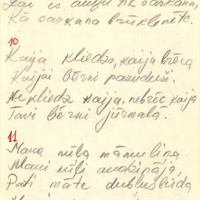 Lai es augu tik sarkana,
Kā sarkana brūklenīte.
10
Kaija kliedza, kaija brēca
Kaijai bērni pazuduši.
Nekliedz kaija, nebrēc, kaija
Tavi bērni jūrmalā.
11
Mana mīļa māmuliņa
Mani mīļi audzināja,
Pati māte dubļus brida